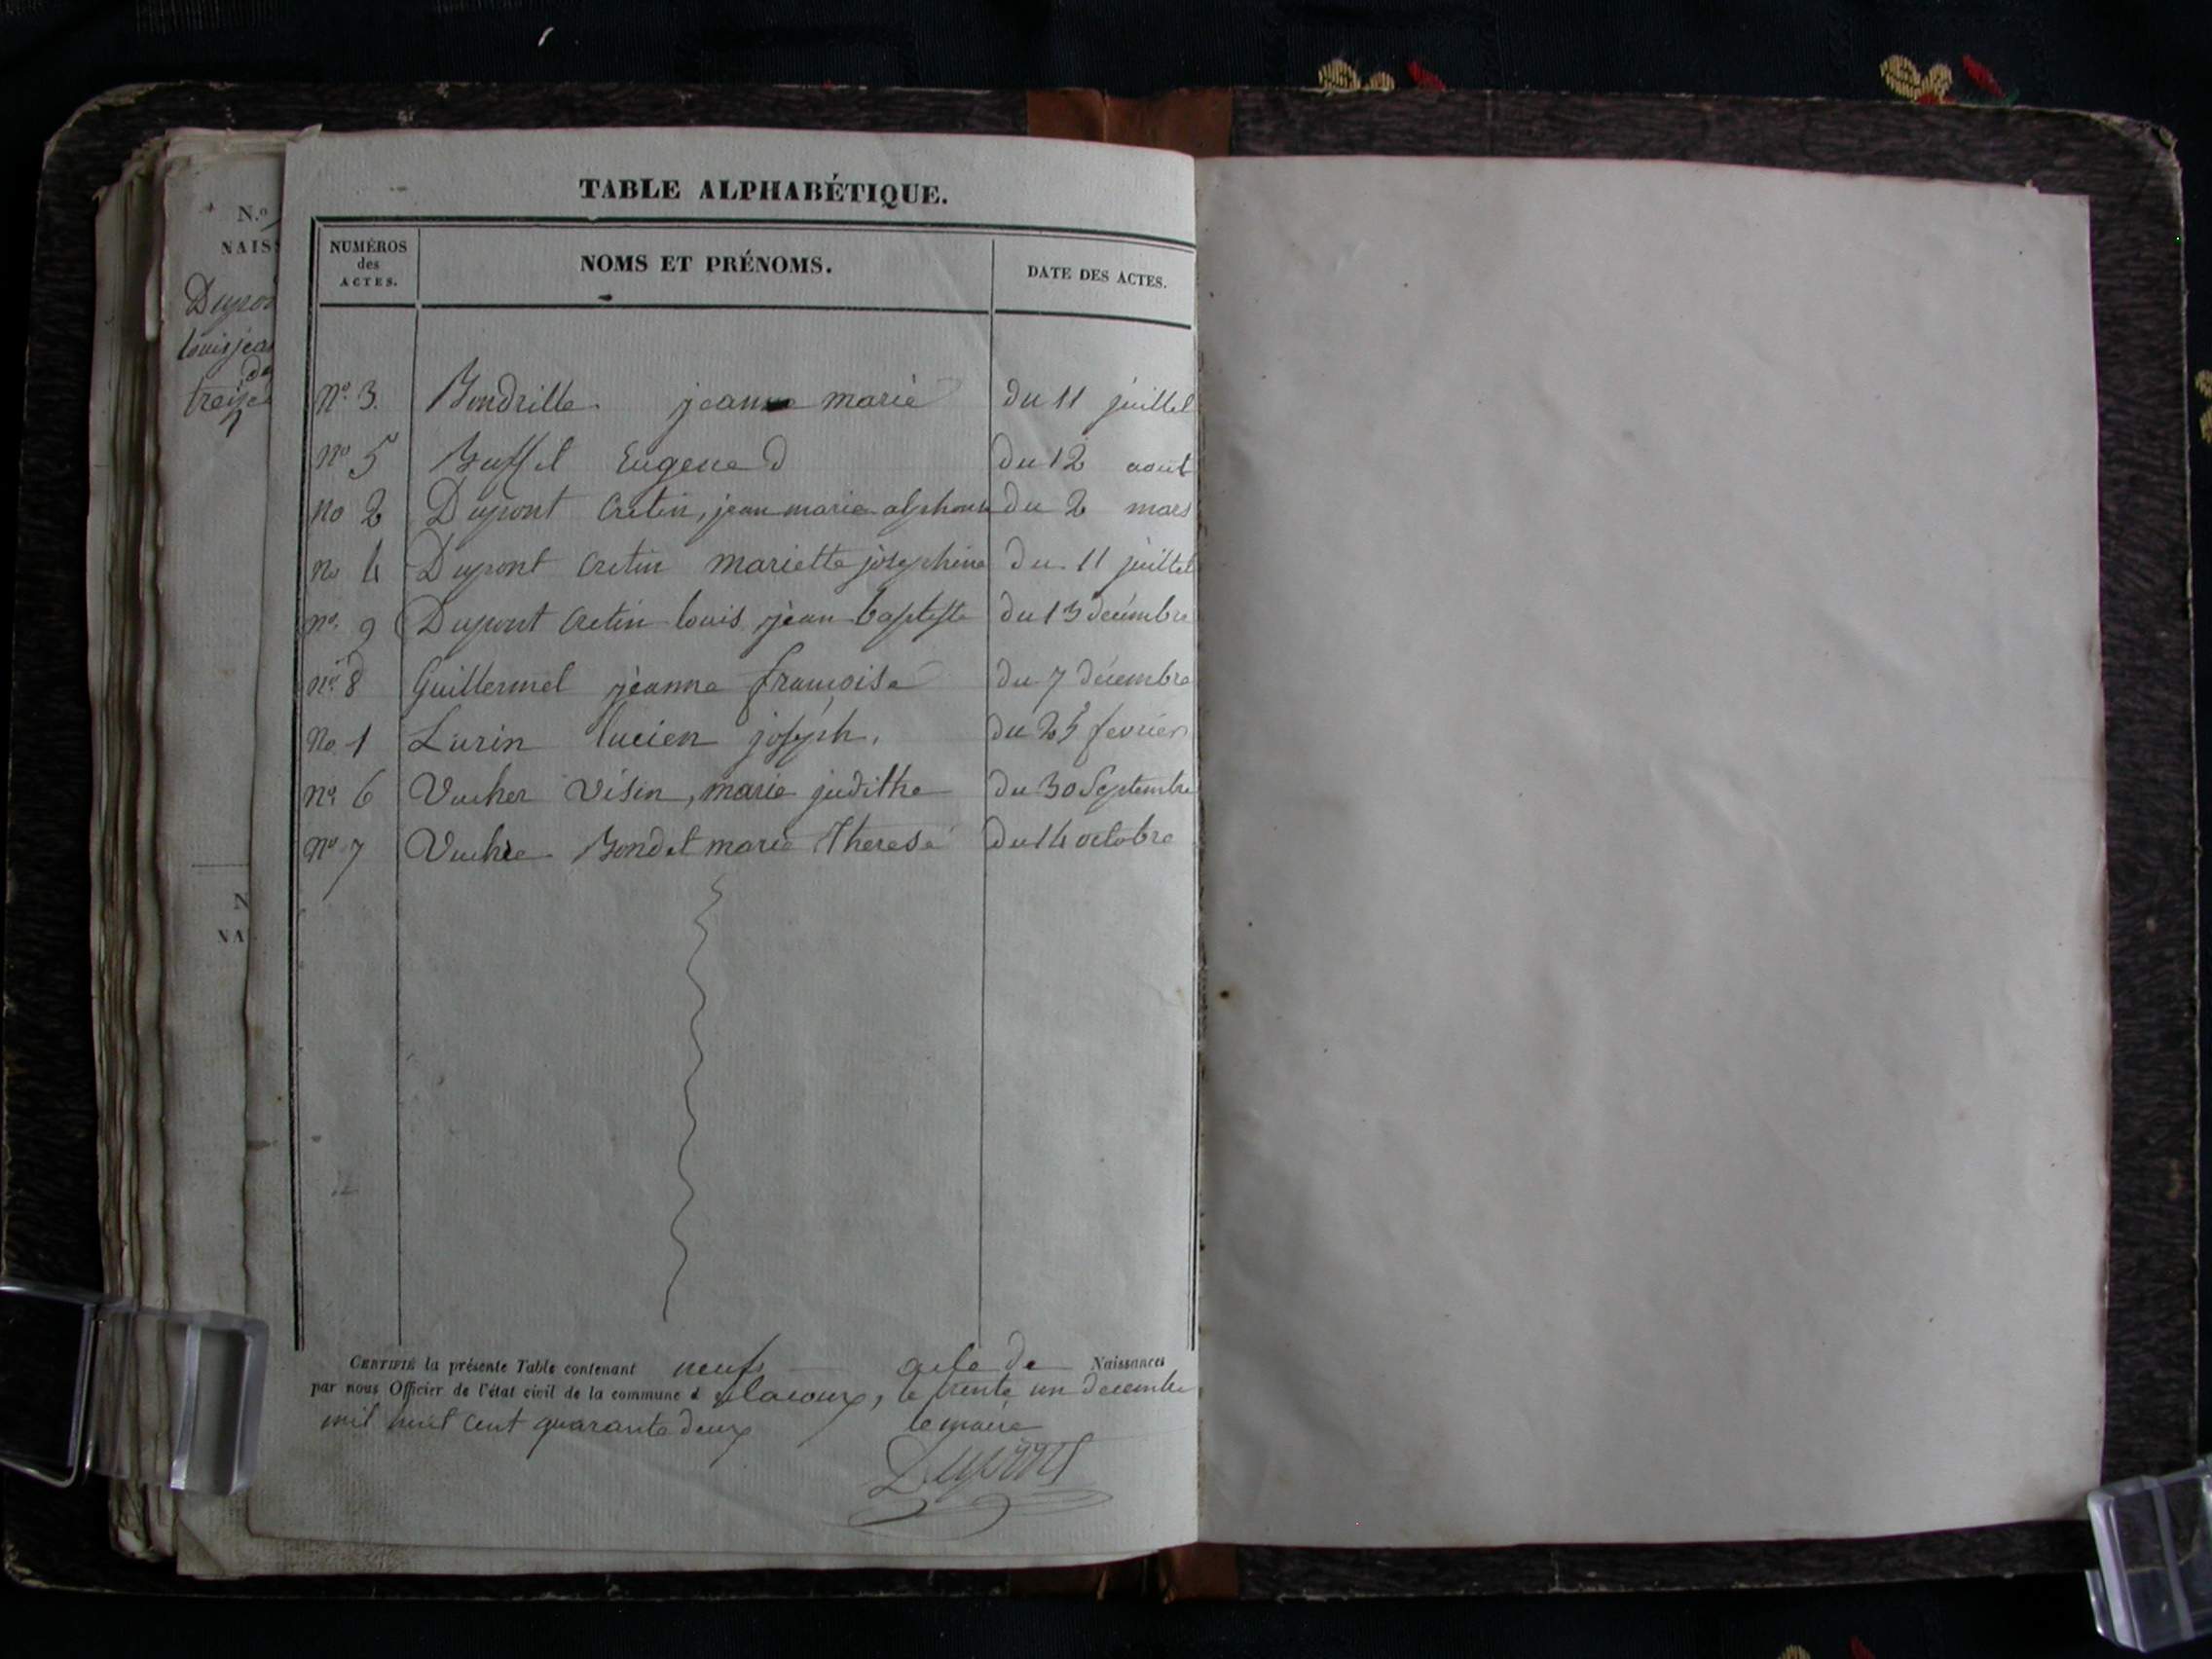 N.º
NAIS
Dupon
louis jea
du
treize
N
NA
TABLE ALPHABÉTIQUE.
NUMÉROS des ACTES. NOMS ET PRÉNOMS. DATE DES ACTES.
nº 3. Bondrille jeanne marie du 11 juillet
nº 5 Buffet Eugene d du 12 aout
no 2 Dupont Cretin, jean marie alphonse du 2 mars
no 4 Dupont Cretin mariette josephine du 11 juillet
nº 9 Dupont Cretin louis jean baptiste du 13 décembre
nº 8 Guillermet jeanne françoise du 7 décembre
No 1 Lurin lucien joseph. du 25 fevrier
nº 6 Vucher Visin, marie judithe du 30 Septembre
Nº 7 Vuche Bondet marie Therese du 14 octobre
CERTIFIÉ la présente Table contenant neufs acte de Naissances
par nous Officier de l'état civil de la commune d lacoux, le trente un decembre
mil huit cent quarante deux le maire
Dupont